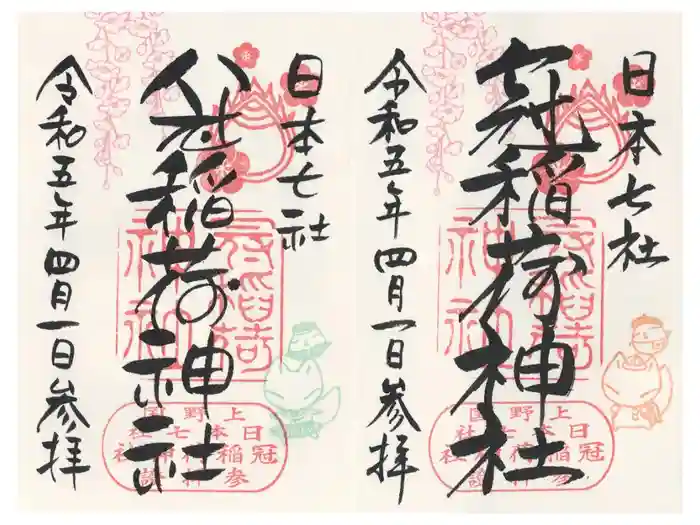 日本七社
冠稲荷神社
令和五年四月一日参拝
冠稲荷
神社
上野国
日本七社
冠稲荷神社
参拝證
日本七社
稲荷神社
令和五年四月一日参拝
冠稲荷
神社
上野国
日本七社
冠稲荷神社
参拝證